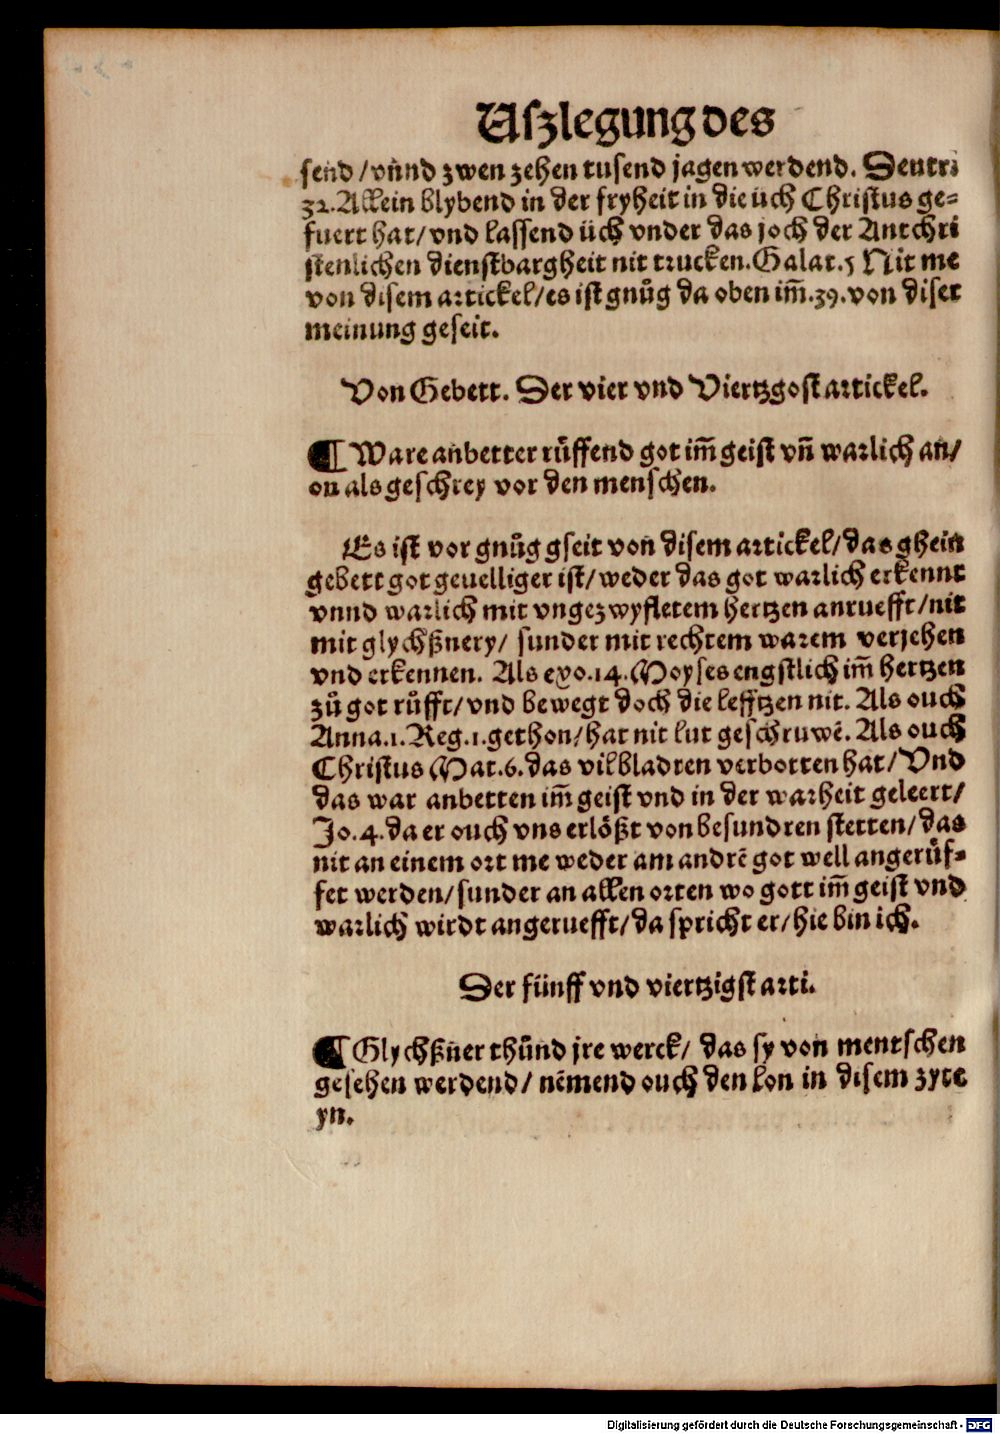 Uſzlegung des
ſend / vnnd zwen zehen tuſend jagen werdend. Deutri
32. Allein blybend in der fryheit in die üch Chriſtus ge⸗
fuert hat / vnd laſſend üch vnder das joch der Antchri
ſtenlichen dienſtbargheit nit trucken. Galat. 5 Nit me
von diſem artickel / es iſt gnůg da oben im̃ .39. von diſer
meinung geſeit.
Von Gebett. Der vier vnd Viertzgoſt artickel.
¶ Ware anbetter růffend got im̃ geiſt vñ warlich an /
on als geſchrey vor den menſchen.
Es iſt vor gnůg gſeit von diſem artickel / das ghein
gebett got geuelliger iſt / weder das got warlich erkennt
vnnd warlich mit vngezwyfletem hertzen anruefft / nit
mit glychßnery / ſunder mit rechtem warem verjehen
vnd erkennen. Als exo. 14. Moyſes engſtlich im̃ hertzen
zů got růfft / vnd bewegt doch die lefftzen nit. Als ouch
Anna. 1. Reg. 1. gethon / hat nit lut geſchruwẽ. Als ouch
Chriſtus Mat. 6. das vilbladren verbotten hat / Vnd
das war anbetten im̃ geiſt vnd in der warheit geleert /
Jo. 4. da er ouch vns erlößt von beſundren ſtetten / das
nit an einem ort me weder am andrẽ got well angerůf⸗
fet werden / ſunder an allen orten wo gott im̃ geiſt vnd
warlich wirdt angeruefft / da ſpricht er / hie bin ich.
Der fünff vnd viertzigſt arti.
¶ Glychßner thůnd jre werck / das ſy von mentſchen
geſehen werdend / nẽmend ouch den lon in diſem zyte
yn.
Digitalisierung gefördert durch die Deutsche Forschungsgemeinschaft - DFG